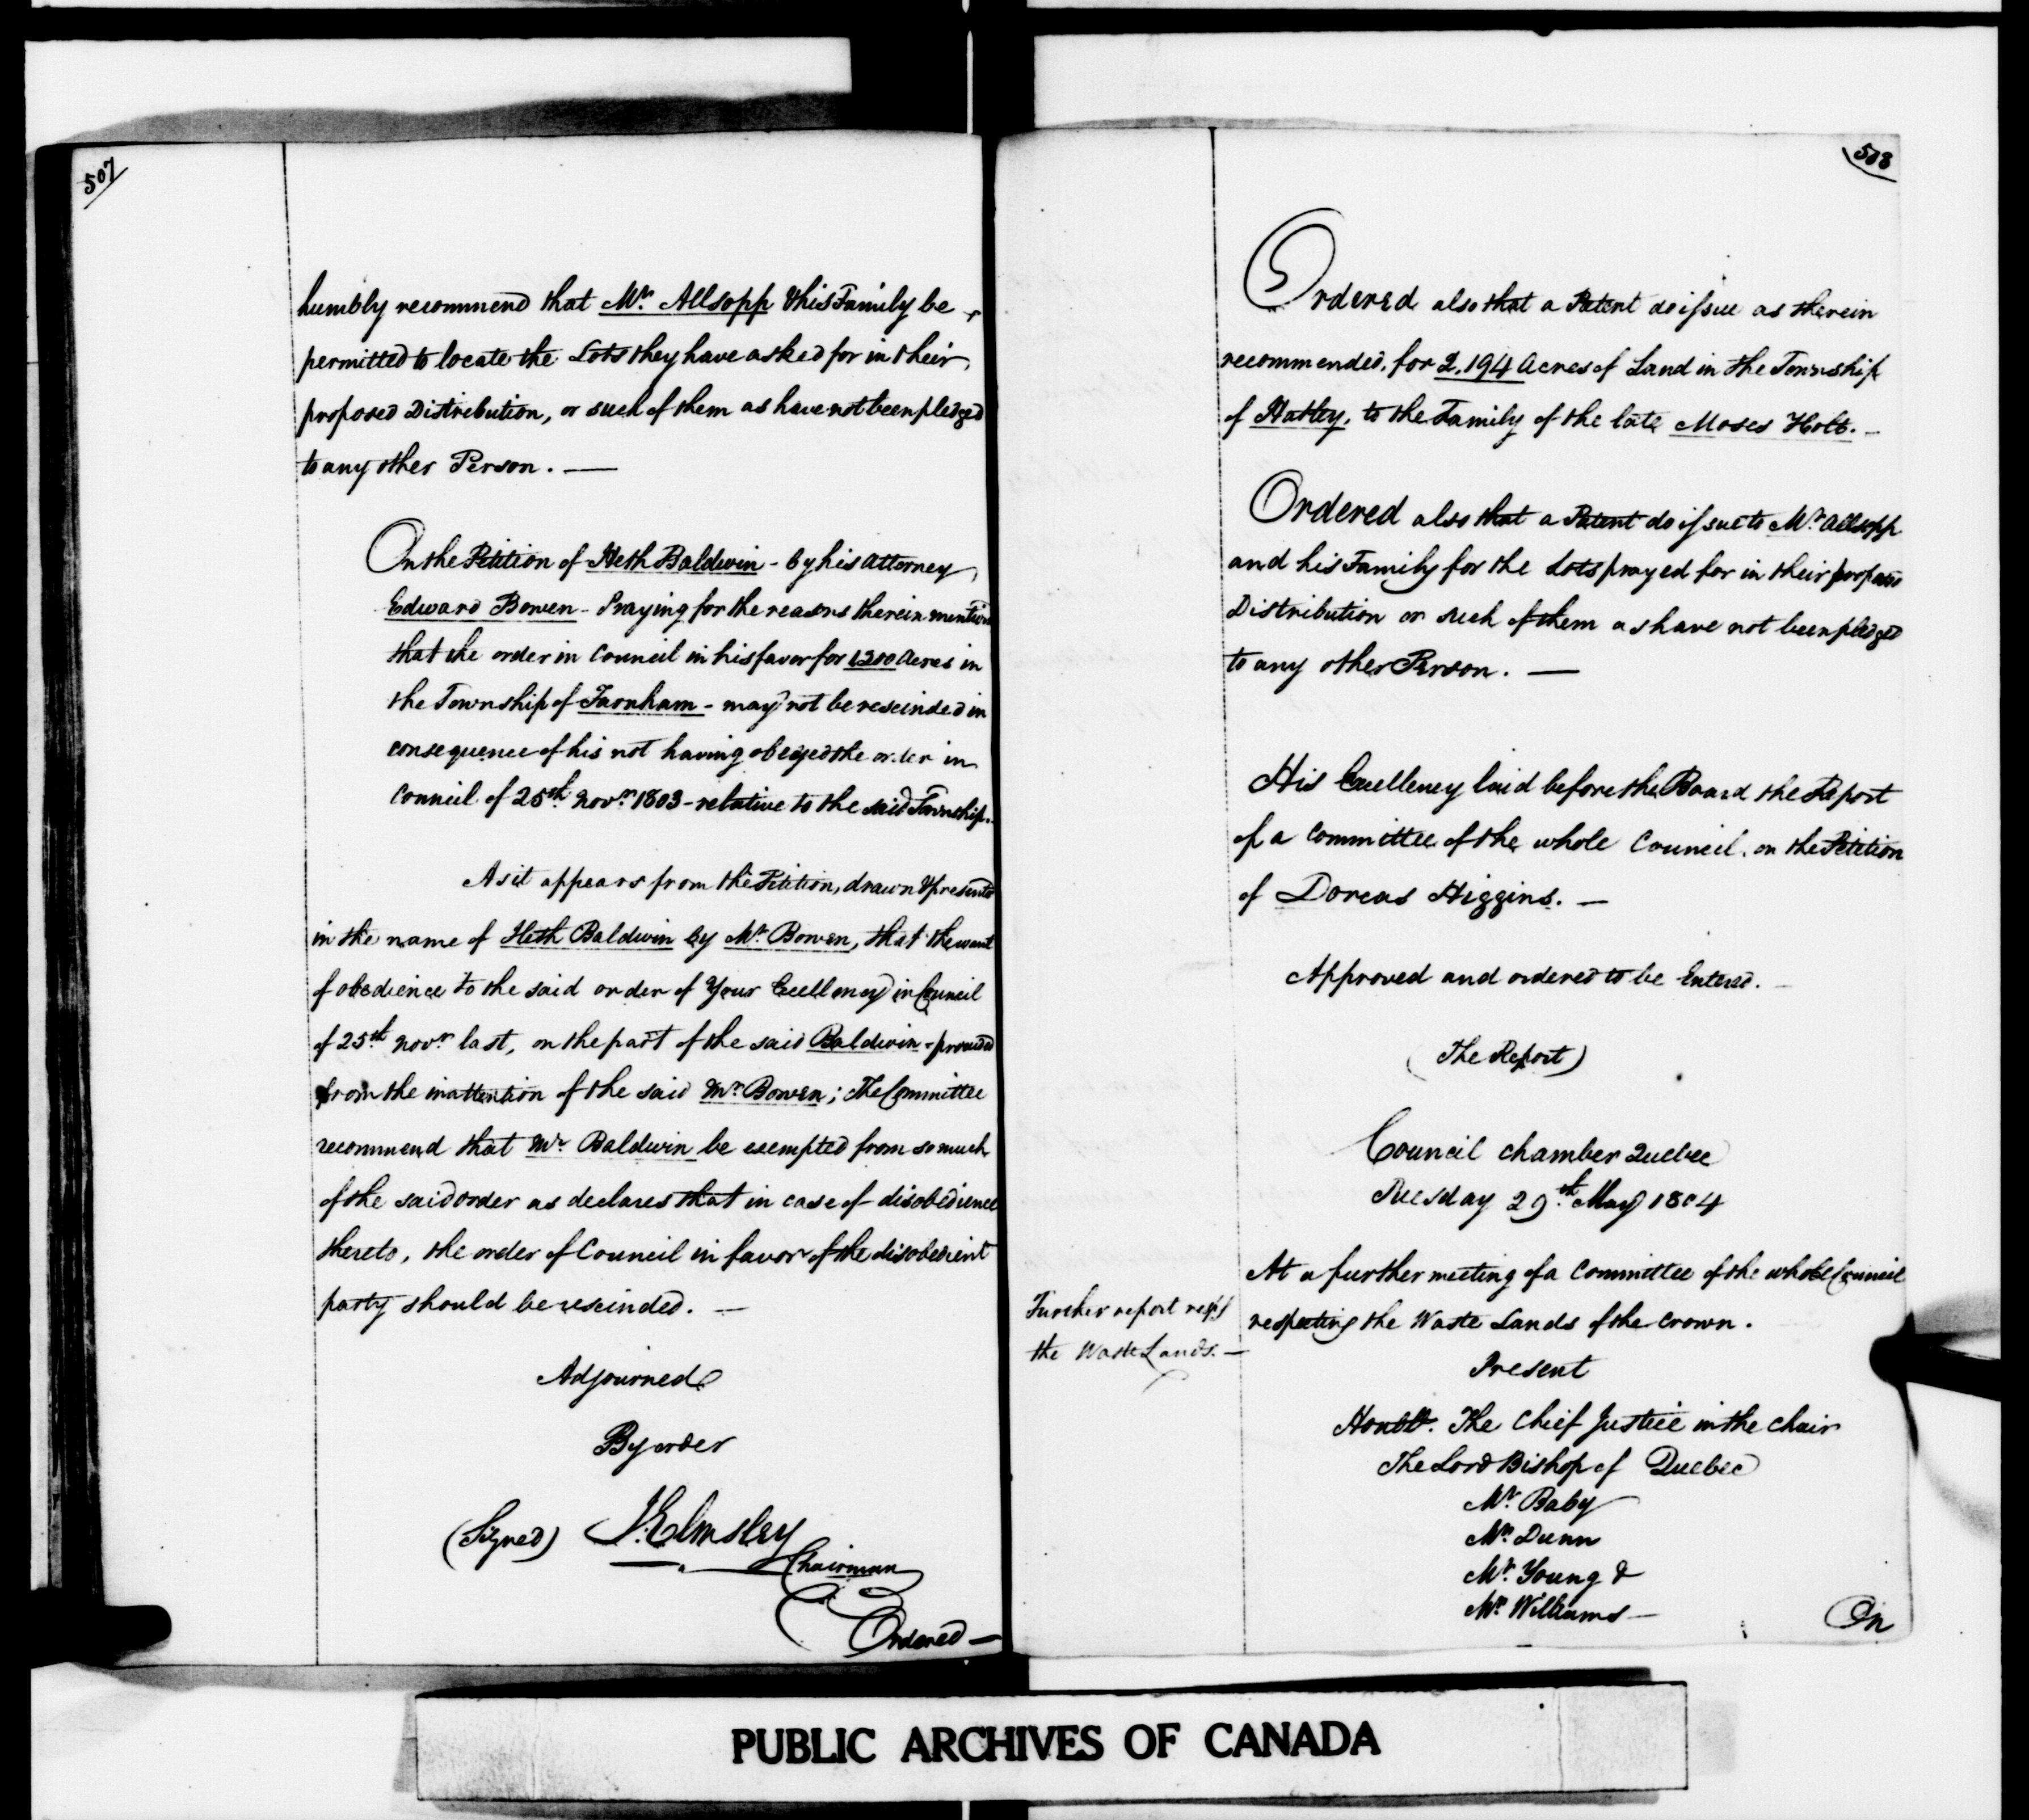 507
humbly recommend that Mr. Allsopp & his Family be
permitted to locate the Lots they have asked for in their
proposed Distribution, or such of them as have not been pledged
to any other Person. —
On the Petition of Heth Baldwin - by his Attorney
Edward Bowen - Praying for the reasons therein mention
that the order in Council in his favor for 1200 Acres in
the Township of Farnham - may not be rescinded in
consequence of his not having obeyed the order in
Council of 25th Novr. 1803 - relative to the said Township.
As it appears from the Petition, drawn & presented
in the name of Heth Baldwin by Mr. Bowen, that the want
of obedience to the said order of Your Excellency in Council
of 25th Novr. last, on the part of the said Baldwin - proceeded
from the inattention of the said Mr. Bowen; The Committee
recommend that Mr. Baldwin be exempted from so much
of the said order as declares that in case of disobedience
thereto, the order of Council in favor of the disobedient
party should be rescinded. —
Adjourned
By order
(Signed) J. Elmsley
Chairman
Ordered —
508
Ordered also that a Patent do issue as therein
recommended, for 2,194 Acres of Land in the Township
of Hatley, to the Family of the late Moses Holt. —
Ordered also that a Patent do issue to Mr. Allsopp
and his Family for the Lots prayed for in their proposed
Distribution or such of them as have not been pledged
to any other Person. —
His Excellency laid before the Board the Report
of a Committee of the whole Council, on the Petition
of Dorcas Higgins. —
Approved and ordered to be Entered. —
(The Report)
Council Chamber Quebec
Tuesday 29th May 1804
At a further meeting of a Committee of the whole Council
respecting the Waste Lands of the Crown.
Further report resp.g
the Waste Lands. —
Present
Honble. The Chief Justice in the Chair
The Lord Bishop of Quebec
Mr. Baby
Mr. Dunn
Mr. Young &
Mr. Williams —
On
PUBLIC ARCHIVES OF CANADA